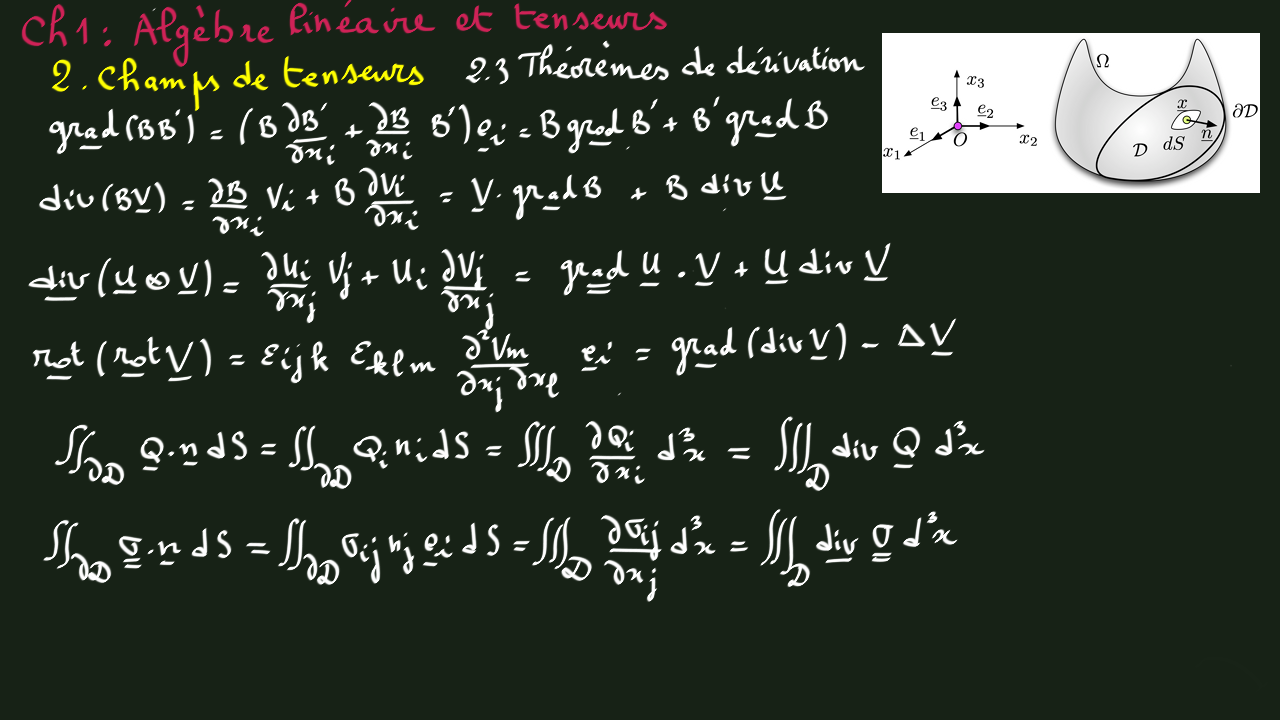 Ch1: Algèbre linéaire et tenseurs
2. Champs de tenseurs 2.3 Théorèmes de dérivation
grad(BB') = (B ∂B'/∂xi + ∂B/∂xi B') ei = B grad B' + B' grad B
div(BV) = ∂B/∂xi Vi + B ∂Vi/∂xi = V · grad B + B div U
div(U ⊗ V) = ∂Ui/∂xj Vj + Ui ∂Vj/∂xj = grad U · V + U div V
rot(rot V) = εijk εklm ∂²Vm/∂xj ∂xl ei = grad(div V) − ΔV
∬∂D Q · n dS = ∬∂D Qi ni dS = ∭D ∂Qi/∂xi d³x = ∭D div Q d³x
∬∂D σ · n dS = ∬∂D σij nj ei dS = ∭D ∂σij/∂xj d³x = ∭D div σ d³x
x3
e3
e2
e1
x1
O
x2
Ω
x
n
∂D
D
dS